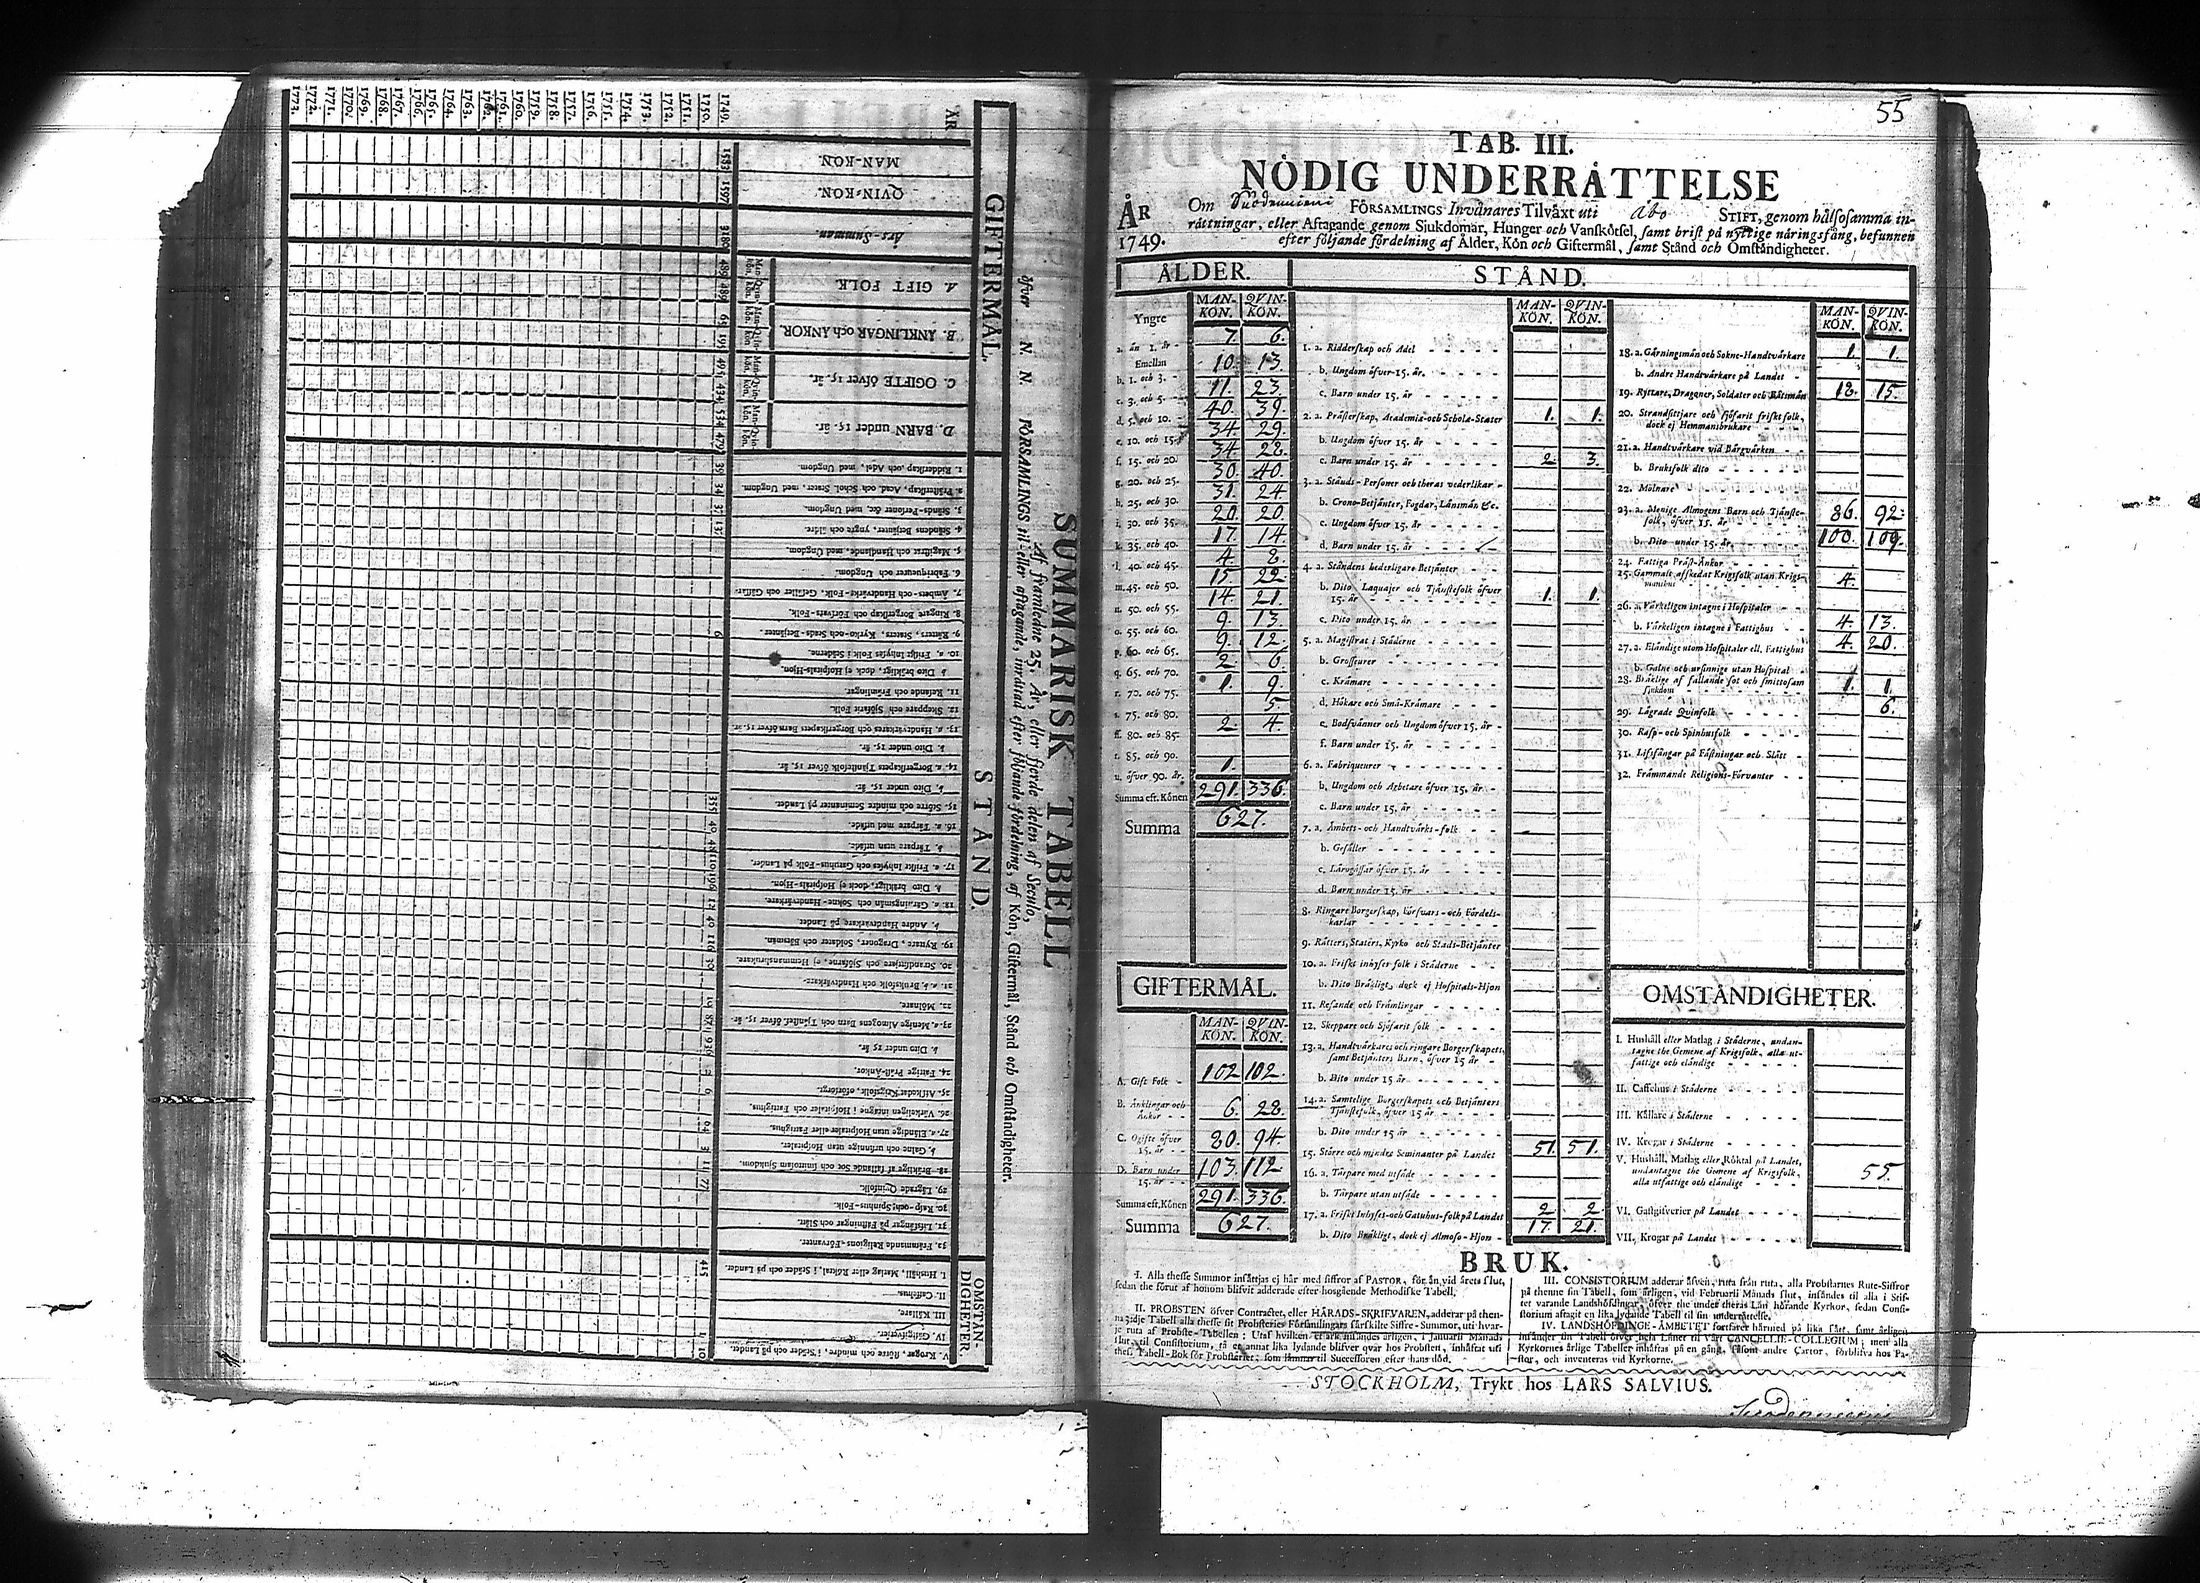 SUMMARISK TABELL
Af framledne 25. År, eller fjerde delen af Seculo,
öfver N. N. FÖRSAMLINGS til- eller aftagande, inrättad efter följande fördelning, af Kön, Giftermål, Stånd och Omständigheter.
GIFTERMÅL.
STÅND.
OMSTÄNDIGHETER.
ÅR
MAN-KÖN.
QVIN-KÖN.
Års-Summan.
A. GIFT FOLK.
B. ÄNKLINGAR och ÄNKOR.
C. OGIFTE öfver 15. år.
D. BARN under 15. år.
1. Ridderskap och Adel, med Ungdom.
2. Prästerskap, Acad. och Schol. Stater, med Ungdom.
3. Stånds-Personer &c. med Ungdom.
4. Ståndens Betjänter, yngre och äldre.
5. Magistrat och Handlande, med Ungdom.
6. Fabriqueurer och Ungdom.
7. Ämbets- och Handtvärks-Folk, Gesäller och Gåssar.
8. Ringare Borgerskap och Förfvars-Folk.
9. Rätters, Staters, Kyrko-och Stads-Betjänter.
10. a. Friskt Inhyses Folk i Städerne.
b. Dito bräkligt, dock ej Hospitals-Hjon.
11. Resande och Främlingar.
12. Skeppare och Sjöfarit Folk.
13. a. Handtvärkares och Borgerskapets Barn öfver 15. år.
b. Dito under 15. år.
14. a. Borgerskapets Tjänstefolk öfver 15. år.
b. Dito under 15. år.
15. Större och mindre Seminanter på Landet.
16. a. Tårpare med utsäde.
b. Tårpare utan utsäde.
17. a. Friskt inhyses och Gatuhus-Folk på Landet.
b. Dito bräkligt, dock ej Hospitals-Hjon.
18. a. Gärningsmän och Sokne-Handtvärkare.
b. Andre Handtvärkare på Landet.
19. Ryttare, Dragoner, Soldater och Båtsmän.
20. Strandsittjare och Sjöfarne, ej Hemmansbrukare.
21. a. b. Bruksfolk och Handtvärkare.
22. Mölnare.
23. a. Menige Almogens Barn och Tjänstef. öfver 15. år.
b. Dito under 15. år.
24. Fattige Präst-Änkor.
25. Afskedat Krigsfolk, oförsörgt.
26. Värkeligen intagne i Hospitaler och Fattighus.
27. a. Eländige utan Hospitaler eller Fattighus.
b. Galne och ursinnige utan Hospitaler.
28. Bräklige af fallande Sot och smittosam Sjukdom.
29. Lägrade Qvinfolk.
30. Rasp-och Spinhus-Folk.
31. Lifsfångar på Fästningar och Slått.
32. Främmande Religions-Förvanter.
I. Hushåll, Matlag eller Röktal, i Städer och på Landet.
II. Caffehus.
III. Källare.
IV. Gästgifverier.
V. Krogar, större och mindre, i Städer och på Landet.
1749.
1750.
1751.
1752.
1753.
1754.
1755.
1756.
1757.
1758.
1759.
1760.
1761.
1762.
1763.
1764.
1765.
1766.
1767.
1768.
1769.
1770.
1771.
1772.
1773.
55
TAB. III.
NÖDIG UNDERRÄTTELSE
ÅR 1749.
Om Suodenniemi FÖRSAMLINGS Invånares Tilväxt uti Åbo STIFT, genom hälsosamma in-
rättningar, eller Aftagande genom Sjukdomar, Hunger och Vanskötsel, samt brist på nyttige näringsfång, befunnen
efter följande fördelning af Ålder, Kön och Giftermål, samt Stånd och Omständigheter.
ÅLDER.
MAN-KÖN. QVIN-KÖN.
Yngre
a. än 1. år - 7. 6.
Emellan
b. 1. och 3. - 10. 13.
c. 3. och 5. - 11. 23.
d. 5. och 10. - 40. 39.
e. 10. och 15. 34. 29.
f. 15. och 20. 34. 28.
g. 20. och 25. 30. 40.
h. 25. och 30. 31. 24.
i. 30. och 35. 20. 20.
k. 35. och 40. 17. 14.
l. 40. och 45. 4. 8.
m. 45. och 50. 15. 22.
n. 50. och 55. 14. 21.
o. 55. och 60. 9. 13.
p. 60. och 65. 9. 12.
q. 65. och 70. 2. 6.
r. 70. och 75. 1. 9.
s. 75. och 80. 5.
ſſ. 80. och 85. 2. 4.
t. 85. och 90.
u. öfver 90. år. 1.
Summa eft. Könen 291. 336.
Summa 627.
GIFTERMÅL.
MAN-KÖN. QVIN-KÖN.
A. Gift Folk - 102 102.
B. Änklingar och Änkor - - 6. 28.
C. Ogifte öfver 15. år - - 80. 94.
D. Barn under 15. år - - 103. 112
Summa eft. Könen 291. 336.
Summa 627.
STÅND.
MAN-KÖN. QVIN-KÖN.
1. a. Ridderskap och Adel
b. Ungdom öfver 15. år.
c. Barn under 15. år
2. a. Prästerskap, Academiæ-och Scholæ-Stater 1. 1.
b. Ungdom öfver 15. år
c. Barn under 15. år 2. 3.
3. a. Stånds-Personer och theras vederlikar
b. Crono-Betjänter, Fogdar, Länsmän &c.
c. Ungdom öfver 15. år
d. Barn under 15. år
4. a. Ståndens hederligare Betjänter
b. Dito Laquajer och Tjänstefolk öfver 15. år 1. 1.
c. Dito under 15. år.
5. a. Magistrat i Städerne
b. Grosseurer
c. Krämare
d. Hökare och Små-Krämare
e. Bodsvänner och Ungdom öfver 15. år
f. Barn under 15. år
6. a. Fabriqueurer
b. Ungdom och Arbetare öfver 15. år
c. Barn under 15. år
7. a. Ämbets-och Handtvärks-folk
b. Gesäller
c. Lärogåssar öfver 15. år
d. Barn under 15. år
8. Ringare Borgerskap, Förfvars-och Fördelskarlar
9. Rätters, Staters, Kyrko och Stads-Betjänter
10. a. Friskt inhyses folk i Städerne
b. Dito Bräkligt, dock ej Hospitals-Hjon
11. Resande och Främlingar
12. Skeppare och Sjöfarit folk
13. a. Handtvärkares och ringare Borgerskapets, samt Betjänters Barn, öfver 15 år
b. Dito under 15 år
14. a. Samtelige Borgerskapets och Betjänters Tjänstefolk, öfver 15 år
b. Dito under 15 år
15. Större och mindre Seminanter på Landet 51. 51.
16. a. Tårpare med utsäde
b. Tårpare utan utsäde
17. a. Friskt Inhyses-och Gatuhus-folk på Landet 2. 2.
b. Dito Bräkligt, dock ej Almoso-Hjon 17. 21.
MAN-KÖN. QVIN-KÖN.
18. a. Gärningsmän och Sokne-Handtvärkare 1. 1.
b. Andre Handtvärkare på Landet
19. Ryttare, Dragoner, Soldater och Båtsmän 18. 15.
20. Strandsittjare och sjöfarit friskt folk, dock ej Hemmansbrukare
21. a. Handtvärkare vid Bärgvärken
b. Bruksfolk dito
22. Mölnare
23. a. Menige Almogens Barn och Tjänstefolk, öfver 15. år 86. 92.
b. Dito under 15. år 100. 109.
24. Fattiga Präst-Änkor
25. Gammalt afskedat Krigsfolk utan Krigsmanshus 4.
26. a. Värkeligen intagne i Hospitaler
b. Värkeligen intagne i Fattighus 4. 13.
27. a. Eländige utom Hospitaler ell. Fattighus 4. 20.
b. Galne och ursinnige utan Hospital
28. Bräklige af fallande sot och smittosam sjukdom 1. 1.
29. Lägrade Qvinfolk 6.
30. Rasp-och Spinhusfolk
31. Lifsfångar på Fästningar och Slått
32. Främmande Religions-Förvanter
OMSTÄNDIGHETER.
I. Hushåll eller Matlag i Städerne, undantagne the Gemene af Krigsfolk, alla utfattige och eländige
II. Caffehus i Städerne
III. Källare i Städerne
IV. Krogar i Städerne
V. Hushåll, Matlag eller Röktal på Landet, undantagne the Gemene af Krigsfolk, alla utfattige och eländige 55.
VI. Gästgifverier på Landet
VII. Krogar på Landet
BRUK.
I. Alla thesse Summor insättjas ej här med siffror af PASTOR, för än vid årets slut,
sedan the förut af honom blifvit adderade efter hosgående Methodiske Tabell.
II. PROBSTEN öfver Contractet, eller HÄRADS-SKRIFVAREN, adderar på then-
na 3:dje Tabell alla thesse sit Probsteries Församlingars särskilte Siffre-Summor, uti hvar-
je ruta af Probste-Tabellen: Utaf hvilken et ark insändes årligen, i Januarii Månads
slut, til Consistorium, så et annat lika lydande blifver qvar hos Probsten, inhäftat uti
thes Tabell-Bok för Probsteriet, som lämnas til Successoren efter hans död.
III. CONSISTORIUM adderar äfven, ruta från ruta, alla Probstarnes Rute-Siffror
på thenne sin Tabell, som årligen, vid Februarii Månads slut, insändes til alla i Stif-
tet varande Landshöfdingar, öfver the under theras Län hörande Kyrkor, sedan Consi-
storium aftagit en lika lydande Tabell til sin underrättelse.
IV. LANDSHÖFDINGE-ÄMBETET fortfarer härmed på lika sätt, samt årligen
insänder sin Tabell öfver hela Länet til Vårt CANCELLIE-COLLEGIUM; men alla
Kyrkornes årlige Tabeller inhäftas på en gång, såsom andre Cartor, förblifva hos Pa-
stor, och inventeras vid Kyrkorne.
STOCKHOLM, Trykt hos LARS SALVIUS.
Suodenniemi